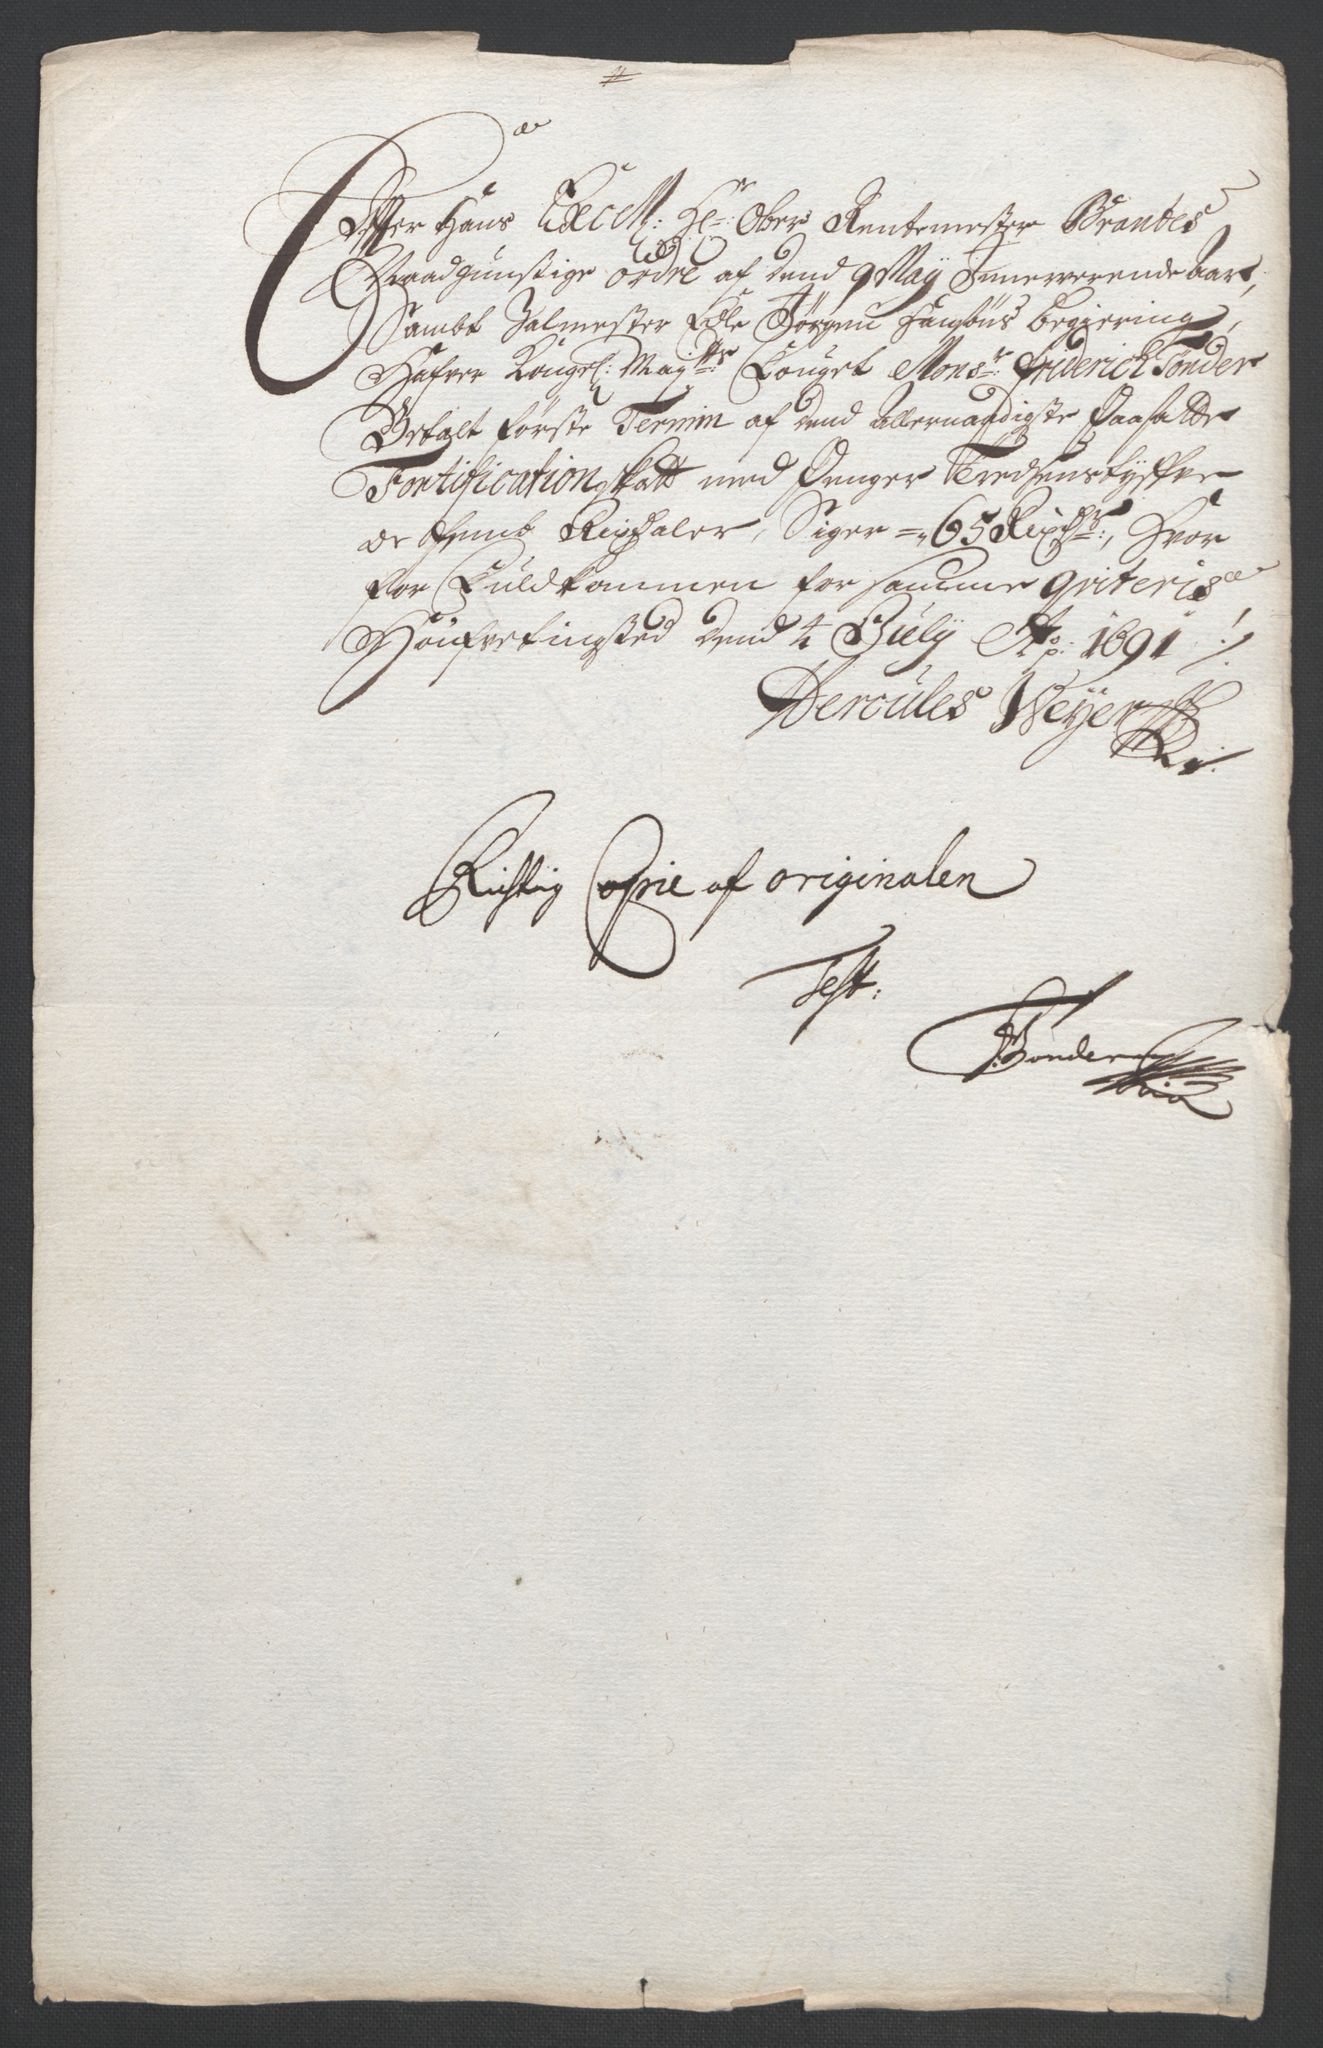 Effter Hans Excell: Hr: Ober Rentemester Brandtes
Naadgunstige ordre af dend 9 Maÿ Inneverende aar,
Sambt Zalmester Edle Jörgen begiering,
Hafver Kongel: Maÿtts: Fouget Monsr: Friderich Tönder
Betalt förste Termin af dend allernaadigste Paasatte
Fortification skatt med Penger Tredsenstyffve
de femb Rixdaler, Siger = 65 Rixdr:, Hvor
for Fuldkommen for samme qviteris
dend 4 Julÿ Ao: 1691 ./.
Hercules Weÿer
Richtig Copie af originalen
Test:
FTönder